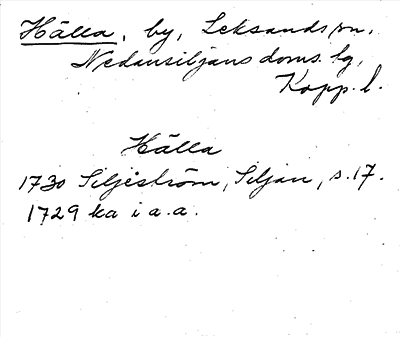 Hälla, by, Leksands sn,
Nedansiljans doms. hg,
Kopp. l.
Hälla
1730 Siljeström, Siljan, s. 17.
1729 ka i a.a.